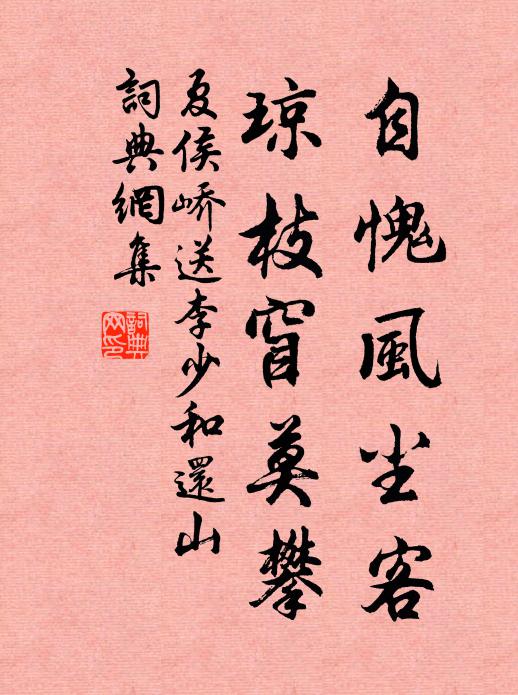 自愧風尘客
琼枝窅莫攀
夏侯峤送李少和還山
詞典網集
詞典
网印